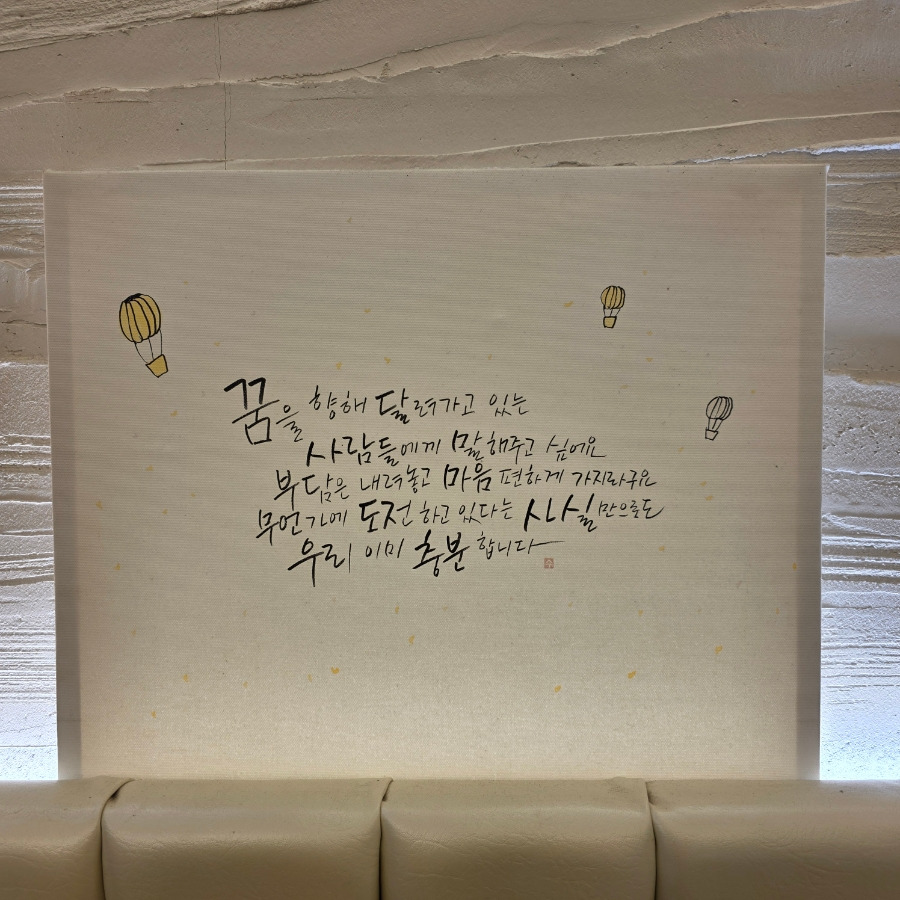 꿈을 향해 달려가고 있는
사람들에게 말해주고 싶어요
부담은 내려놓고 마음 편하게 가지라구요
무언가에 도전하고 있다는 사실만으로도
우리 이미 충분합니다